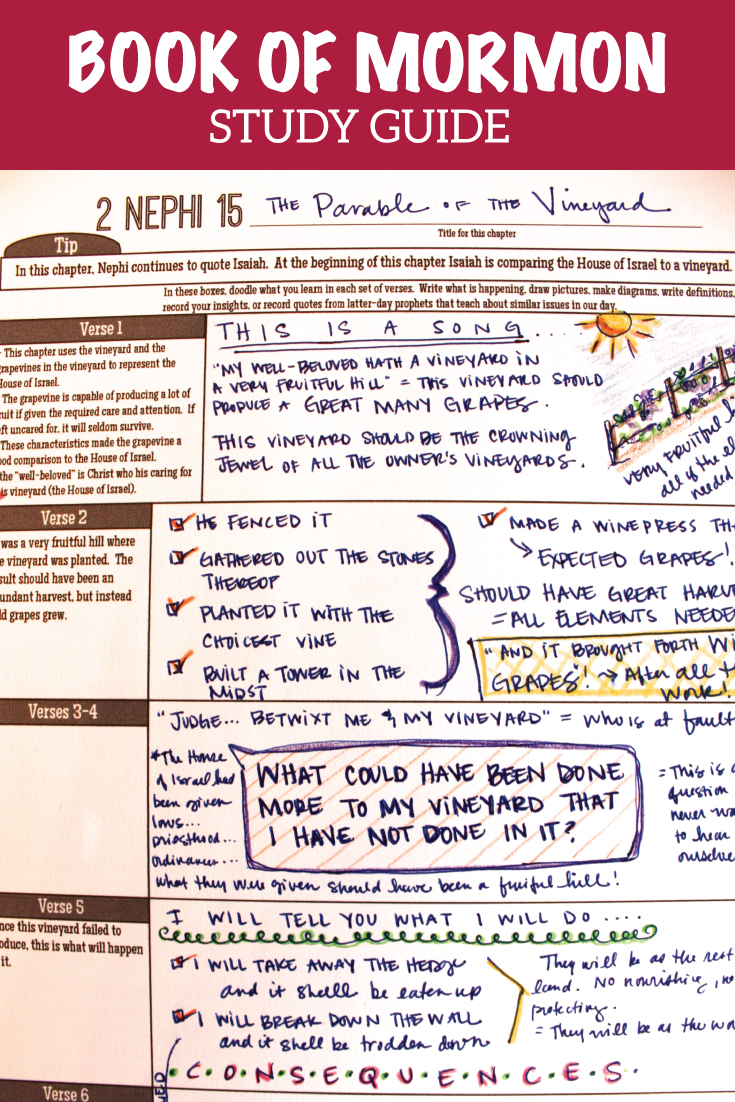 BOOK OF MORMON
STUDY GUIDE
2 NEPHI 15 THE Parable OF THE Vineyard
Title for this chapter
Tip
In this chapter, Nephi continues to quote Isaiah. At the beginning of this chapter Isaiah is comparing the House of Israel to a vineyard.
In these boxes, doodle what you learn in each set of verses. Write what is happening, draw pictures, make diagrams, write definitions,
record your insights, or record quotes from latter-day prophets that teach about similar issues in our day.
Verse 1
This chapter uses the vineyard and the
grapevines in the vineyard to represent the
House of Israel.
The grapevine is capable of producing a lot of
fruit if given the required care and attention. If
left uncared for, it will seldom survive.
These characteristics made the grapevine a
good comparison to the House of Israel.
the "well-beloved" is Christ who his caring for
his vineyard (the House of Israel).
THIS IS A SONG....
"MY WELL-BELOVED HATH A VINEYARD IN
A VERY FRUITFUL HILL" = THIS VINEYARD SHOULD
PRODUCE A GREAT MANY GRAPES.
THIS VINEYARD SHOULD BE THE CROWNING
JEWEL OF ALL THE OWNER'S VINEYARDS.
VERY FRUITFUL
all of the
needed
Verse 2
was a very fruitful hill where
vineyard was planted. The
should have been an
but instead
grapes grew.
HE FENCED IT
GATHERED OUT THE STONES
THEREOF
PLANTED IT WITH THE
CHOICEST VINE
BUILT A TOWER IN THE
MIDST
MADE A WINEPRESS
EXPECTED GRAPES!
SHOULD HAVE GREAT
= ALL ELEMENTS
"AND IT BROUGHT FORTH
GRAPES"! → After all
work!
Verses 3-4
"JUDGE... BETWIXT ME & MY VINEYARD" = who is at fault
*The House
of Israel had
been given
laws...
priesthood...
ordinances...
WHAT COULD HAVE BEEN DONE
MORE TO MY VINEYARD THAT
I HAVE NOT DONE IN IT?
= This is a
question
never
to hear
what they were given should have been a fruitful hill!
Verse 5
this vineyard failed to
this is what will happen
it.
I WILL TELL YOU WHAT I WILL DO....
I WILL TAKE AWAY THE HEDGE
and it shall be eaten up
I WILL BREAK DOWN THE WALL
and it shall be trodden down
They will be as the rest
land. No nourishing, no
protecting.
= They will be as the
C.O.N.S.E.Q.U.E.N.C.E.S.
Verse 6